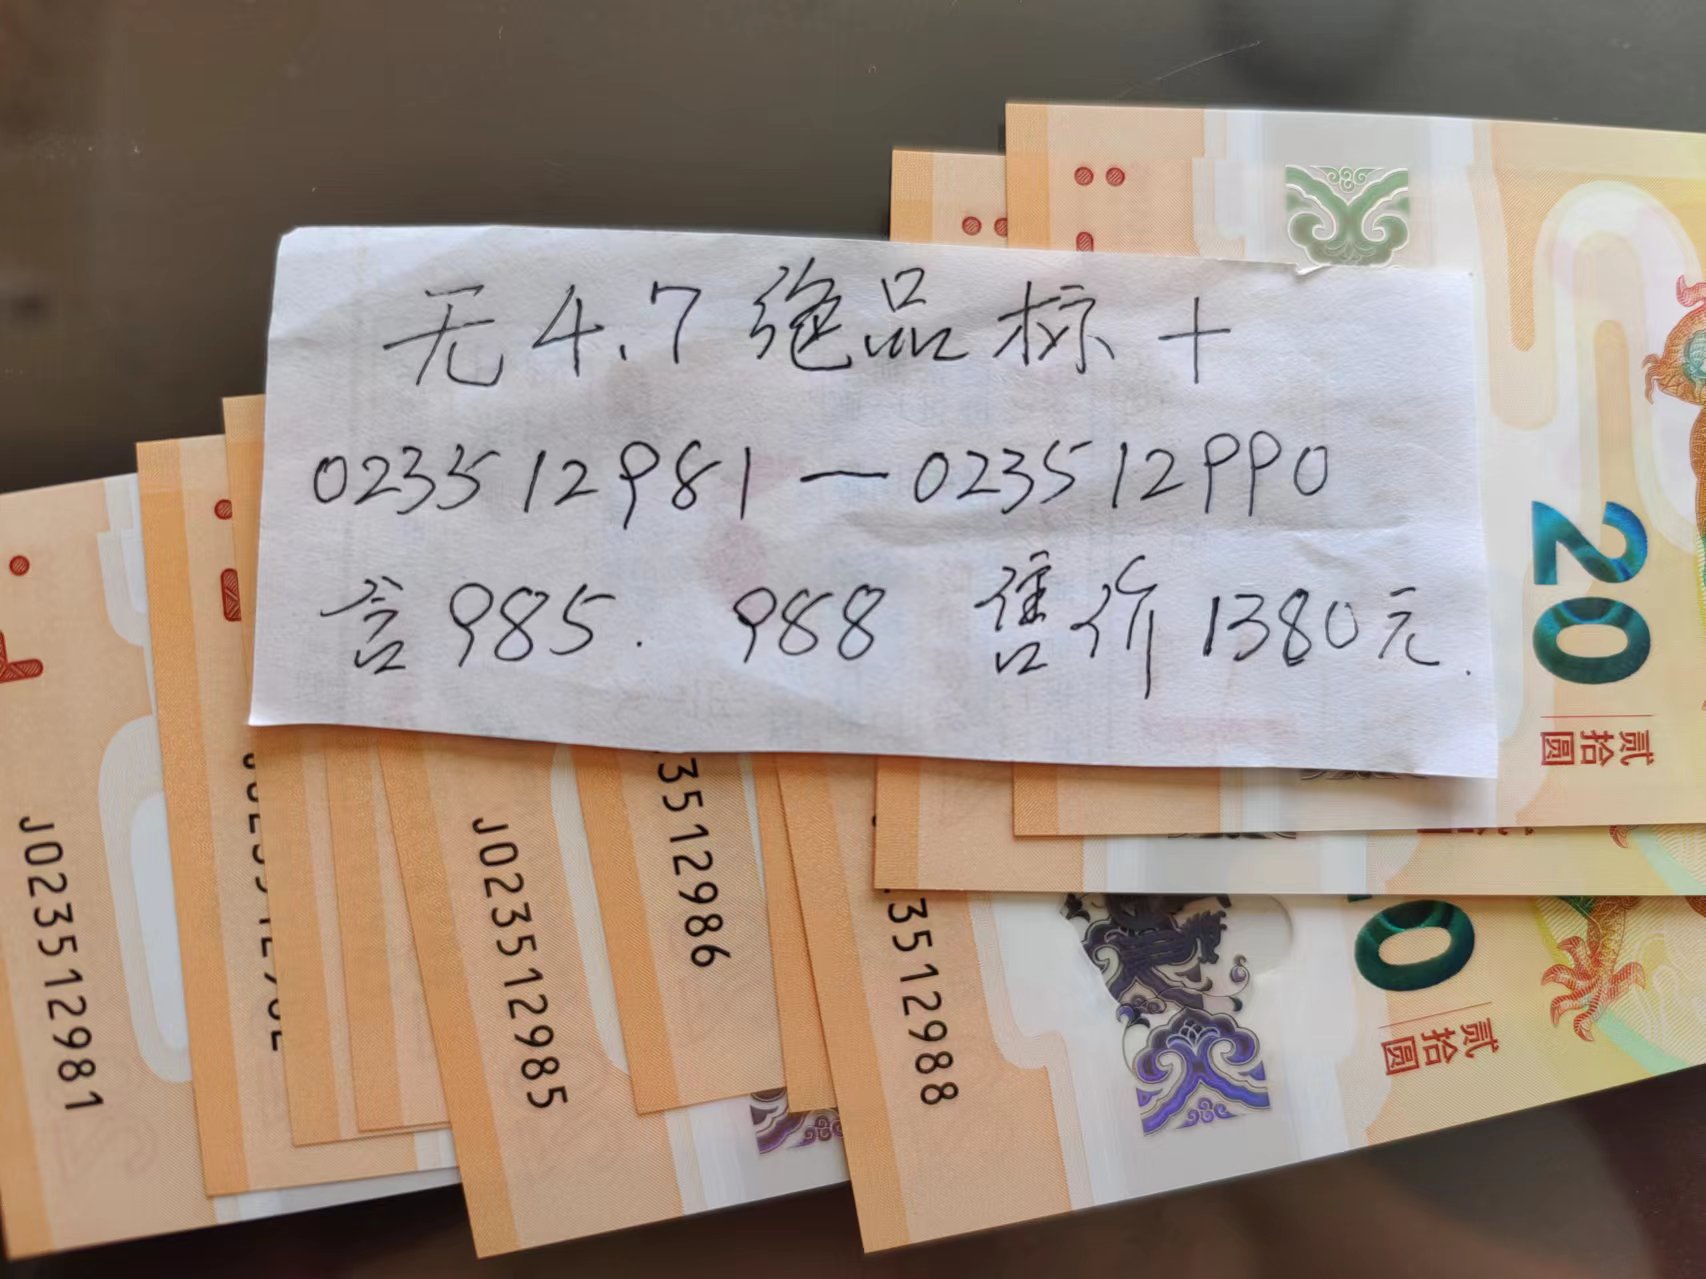 无4.7绝品标十
023512981—023512990
含985. 988 售价1380元.
20
贰拾圆
0
贰拾圆
J023512981
J023512985
3512986
3512988